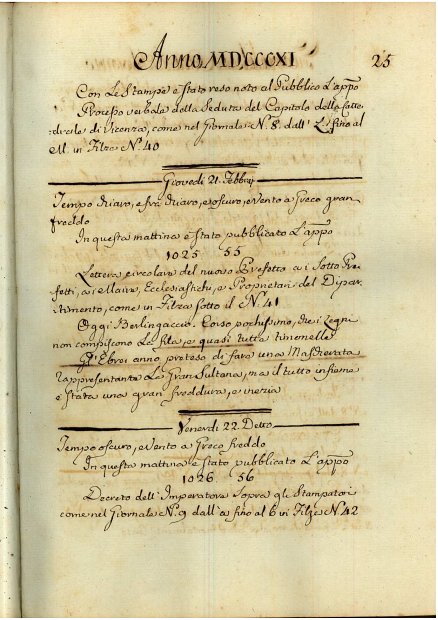 Anno MDCCCXI
25
Con Le Stampe è stato reso noto al Pubblico L'appo
Processo verbale della Seduta del Capitolo della Catte-
drale di Vicenza, come nel Giornale N. 8. dall' L fino al
M. in Filza N. 40
Giovedì 21. Febbrj
Tempo chiaro, e frà chiaro, e oscuro, e Vento a Greco gran
freddo
In questa mattina è stato pubblicato L'appo
1025 55
Lettera circolare del nuovo Prefetto a i Sotto Pre-
fetti, a i Maire, Ecclesiastichi, e Proprietari del Dipar-
timento, come in Filza sotto il N. 41
Oggi Berlingaccio. Corso pochissimo, dieci Legni
non compiscono La fila, e quasi tutta timonelle.
Gl' Ebrei anno preteso di fare una Mascherata
rappresentante La Gran Sultana, ma il tutto insieme
è stata una gran freddura, e inezia
Venerdì 22. Detto
Tempo oscuro, e Vento a Greco freddo
In questa mattina è stato pubblicato L'appo
1026 56
Decreto dell' Imperatore Sopra gli Stampatori
come nel Giornale N. 9 dall' a fino al 6 in Filza N. 42